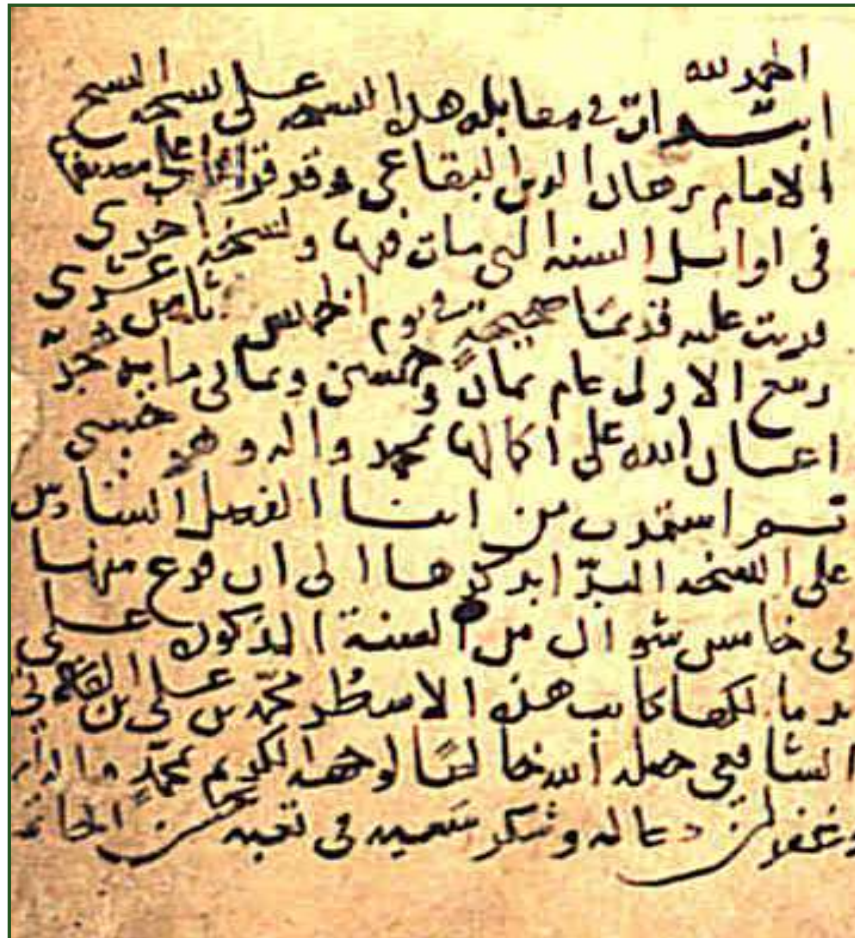 الحمد لله
ابتدات في مقابلة هذه النسخة على نسخة الشيخ
الامام برهان الدين البقاعي وقد قراها على مصنفها
في اوائل السنة التي مات فيها ونسخة اخرى
قريت عليه قديمًا صحيحة في يوم الخميس ثامن عشرى
ربيع الاول عام ثمان وخمسين وثماني ماية
اعان الله على اكمالها بمحمد واله وهو حسبي
ثم استمريت من اثنا الفصل السادس
على النسخة المبدّا بذكرها الى ان فرغ منها
في خامس شوال من السنة المذكورة على
يد مالكها كاتب هذه الاسطُر محمّد بن علي بن
الشافعي جعله الله خالصًا لوجهه الكريم بمحمّدٍ واله
وغفر لمن دعا له وشكر سَعيه في تعبه بحسن الخاتمة